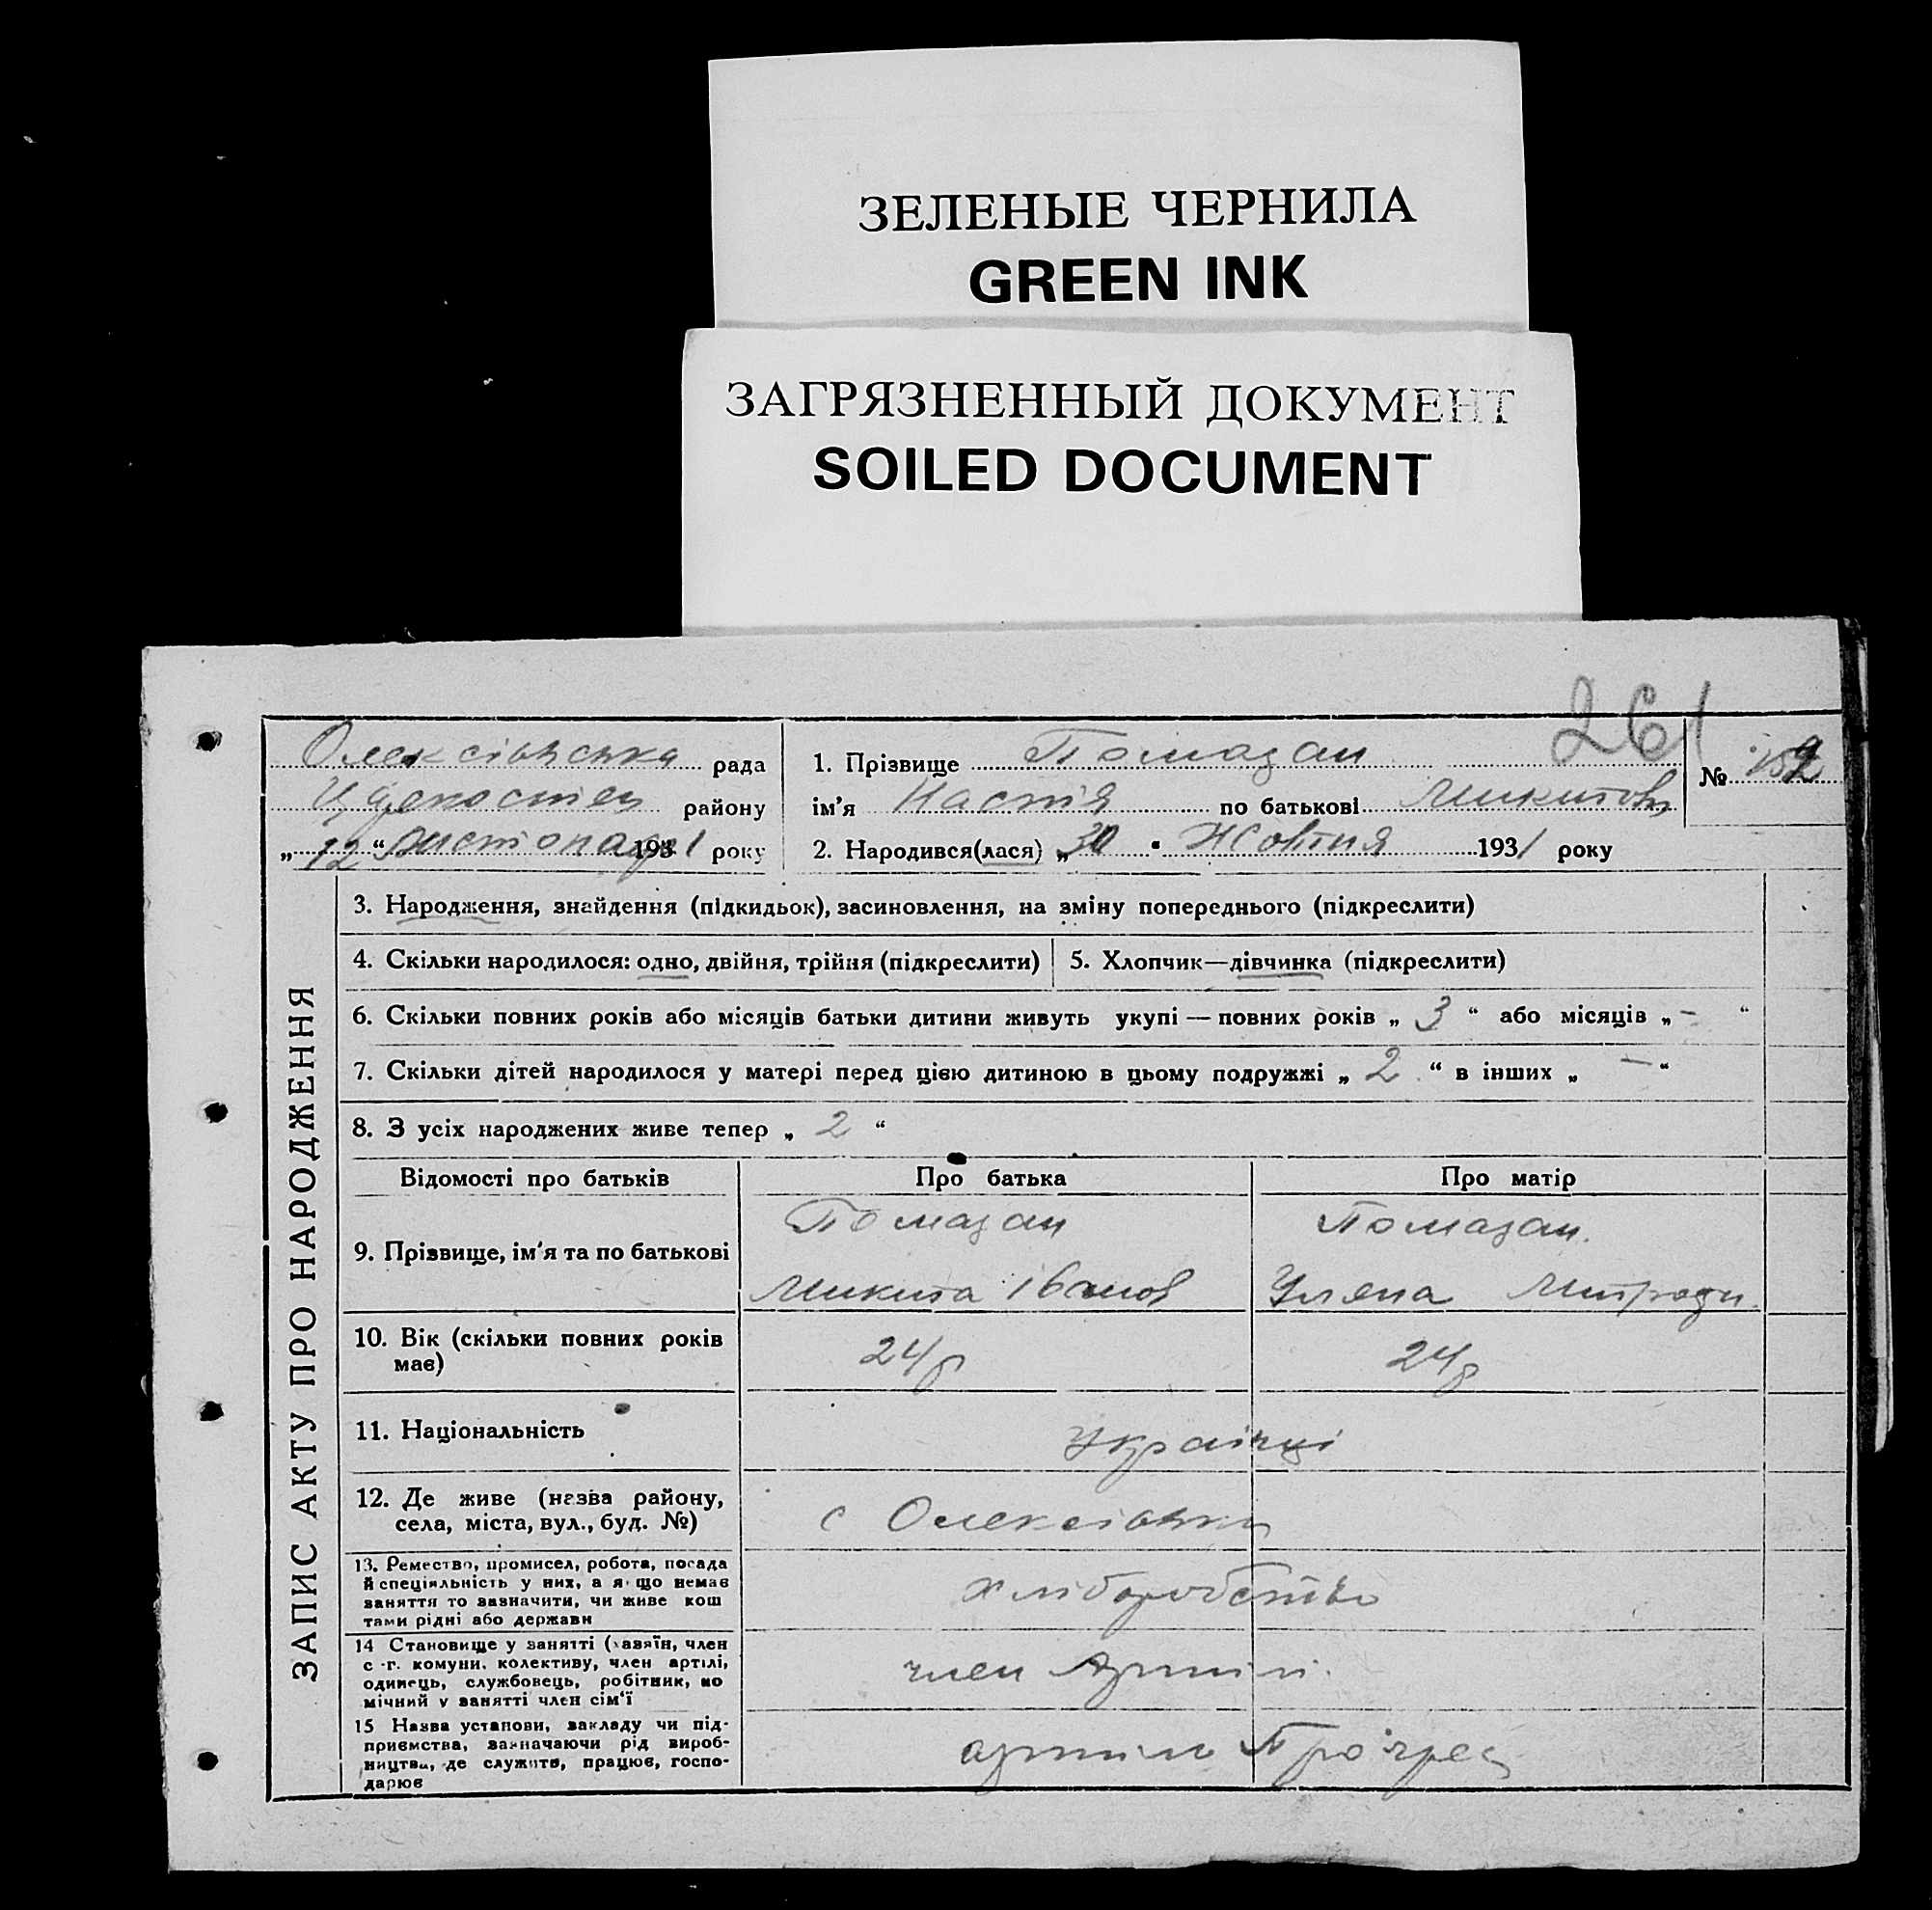 ЗЕЛЕНЫЕ ЧЕРНИЛА
GREEN INK
ЗАГРЯЗНЕННЫЙ ДОКУМЕНТ
SOILED DOCUMENT
261
Олексіївська рада
району
„12“ листопада 1931 року
1. Прізвище Помазан
№
ім'я Настія по батькові Микитовн
2. Народився(лася) „30 " Жовтня 1931 року
ЗАПИС АКТУ ПРО НАРОДЖЕННЯ
3. Народження, знайдення (підкидьок), засиновлення, на зміну попереднього (підкреслити)
4. Скільки народилося: одно, двійня, трійня (підкреслити)
5. Хлопчик—дівчинка (підкреслити)
6. Скільки повних років або місяців батьки дитини живуть укупі — повних років „ 3 “ або місяців „ - “
7. Скільки дітей народилося у матері перед цією дитиною в цьому подружжі „ 2 “ в інших „ — “
8. З усіх народжених живе тепер „ 2 “
Відомості про батьків Про батька Про матір
9. Прізвище, ім'я та по батькові
Помазан
Микита Іванов
Помазан.
Уляна
10. Вік (скільки повних років
має)
24/р
24р
11. Національність
Українці
12. Де живе (назва району,
села, міста, вул., буд. №)
с Олексіївка
13. Ремество, промисел, робота, посада
й спеціяльність у них, а якщо немає
заняття то зазначити, чи живе кош
тами рідні або держави
хліборобство
14 Становище у занятті (хазяїн, член
с.-г. комуни, колективу, член артілі,
одинець, службовець, робітник, по
мічний у занятті член сім'ї
член Артілі.
15 Назва установи, закладу чи під-
приємства, зазначаючи рід вироб-
ництва, де служить, працює, госпо-
дарює
артіль Прогрес